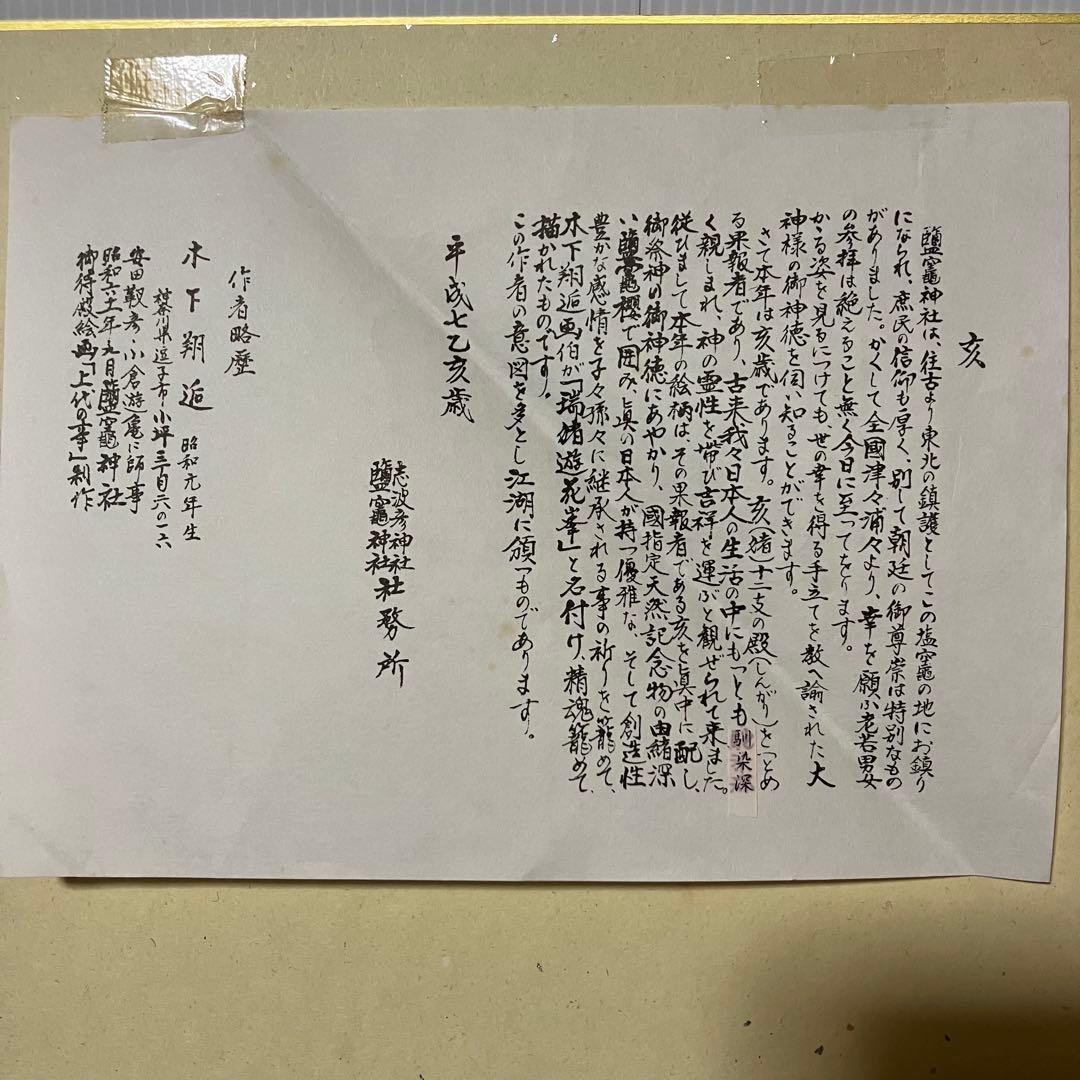 亥
鹽竈神社は、往古より東北の鎮護としてこの塩竈の地にお鎮り
になられ、庶民の信仰も厚く、別して朝廷の御尊崇は特別なもの
がありました。かくして全國津々浦々より、幸を願ふ老若男女
の参拝は絶えること無く今日に至ってをります。
かゝる姿を見るにつけても、世の幸を得る手立てを教へ諭された大
神様の御神徳を伺い知ることができます。
さて本年は亥歳であります。亥(猪)十二支の殿(しんがり)をつとめ
る果報者であり、古来、我々日本人の生活の中にもっとも馴染深
く親しまれ、神の霊性を帯び吉祥を運ぶと観ぜられて来ました。
従ひまして本年の絵柄は、その果報者である亥を眞中に配し、
御祭神の御神徳にあやかり、國指定天然記念物の由緒深
い鹽竈櫻で囲み、眞の日本人が持つ優雅な、そして創造性
豊かな感情を子々孫々に継承される事の祈りを籠めて、
木下翔逅画伯が「瑞猪遊花峯」と名付け、精魂籠めて
描かれたものです。
この作者の意図を多とし江湖に頒つものであります。
平成七乙亥歳
志波彦神社
鹽竈神社
社務所
作者略歴
木下翔逅 昭和元年生
神奈川県逗子市小坪三丁目六の十六
安田靫彦・小倉遊亀に師事
昭和六十一年九月鹽竈神社
御待殿絵画「上代の事」制作